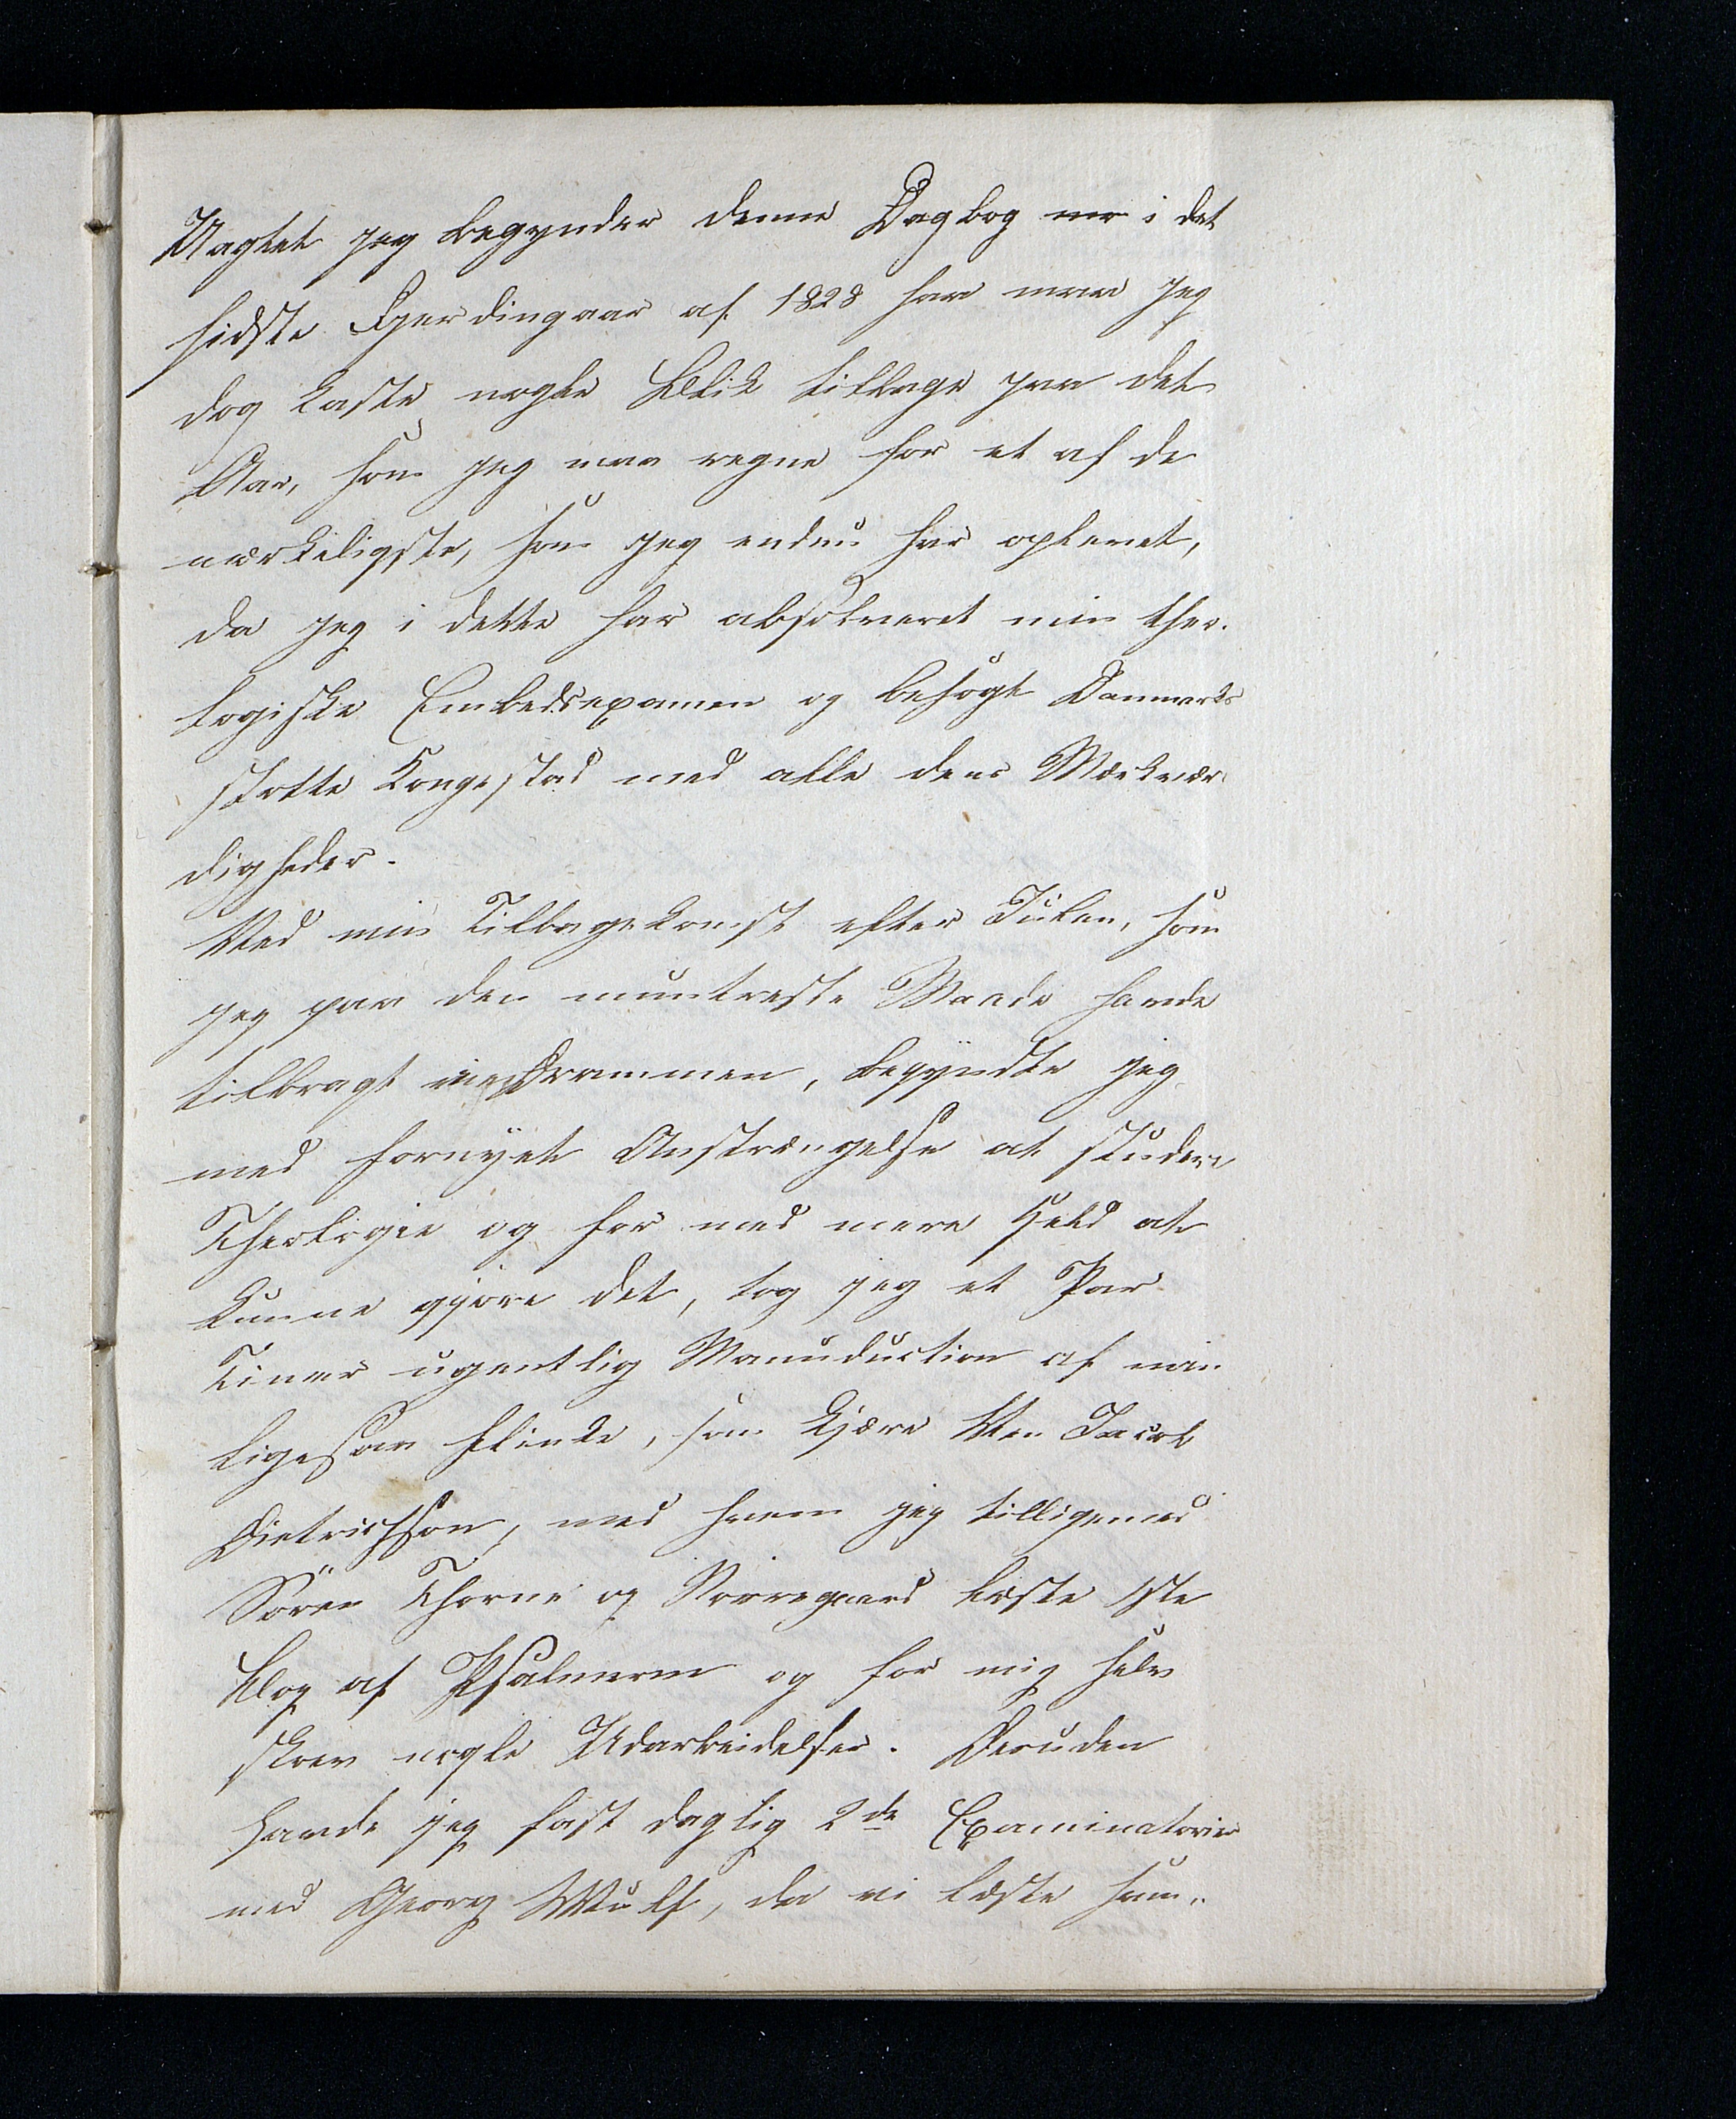 Uagtet jeg begynder denne Dagbog i det
sidste Fjerdingaar af 1828 saa maa jeg
dog kaste nogle Blik tilbage paa det
Aar, som jeg maa regne for et af de
mærkeligste, som jeg endnu har oplevet,
da jeg i dette har absolveret min theo-
logiske Embedsexamen og besøgt Danmarks
stolte Kongestad med alle dens Mærkvær-
digheder.
Ved min Tilbagekomst efter Julen, som
jeg paa den muntreste Maade havde
tilbragt Drammen, begyndte jeg
med fornyet Anstrængelse at studere
Theologie og for med mere Held at
kunne gjøre det, tog jeg et Par
Timer ugentlig Manuduction af min
ligesaa flinke, som kjære Ven Jacob
Dietrichson, med hvem jeg tilligemed
Søren Thorne og Nørregaard læste 1ste
Bog af Psalmerne og for mig selv
skrev nogle Udarbeidelser. Desuden
havde jeg fast daglig 2de Examinatorier
med Georg Wulf, da vi læste sam-